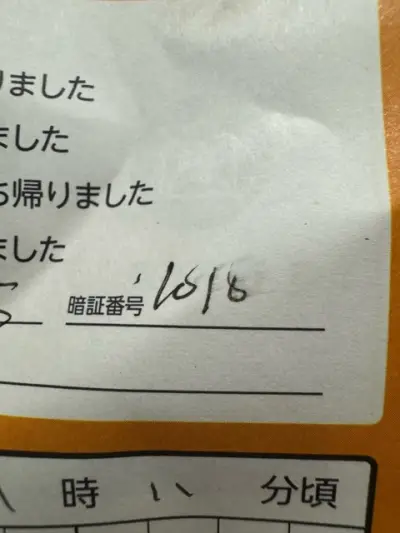 りました
ました
ち帰りました
ました
暗証番号 1018
時 分頃